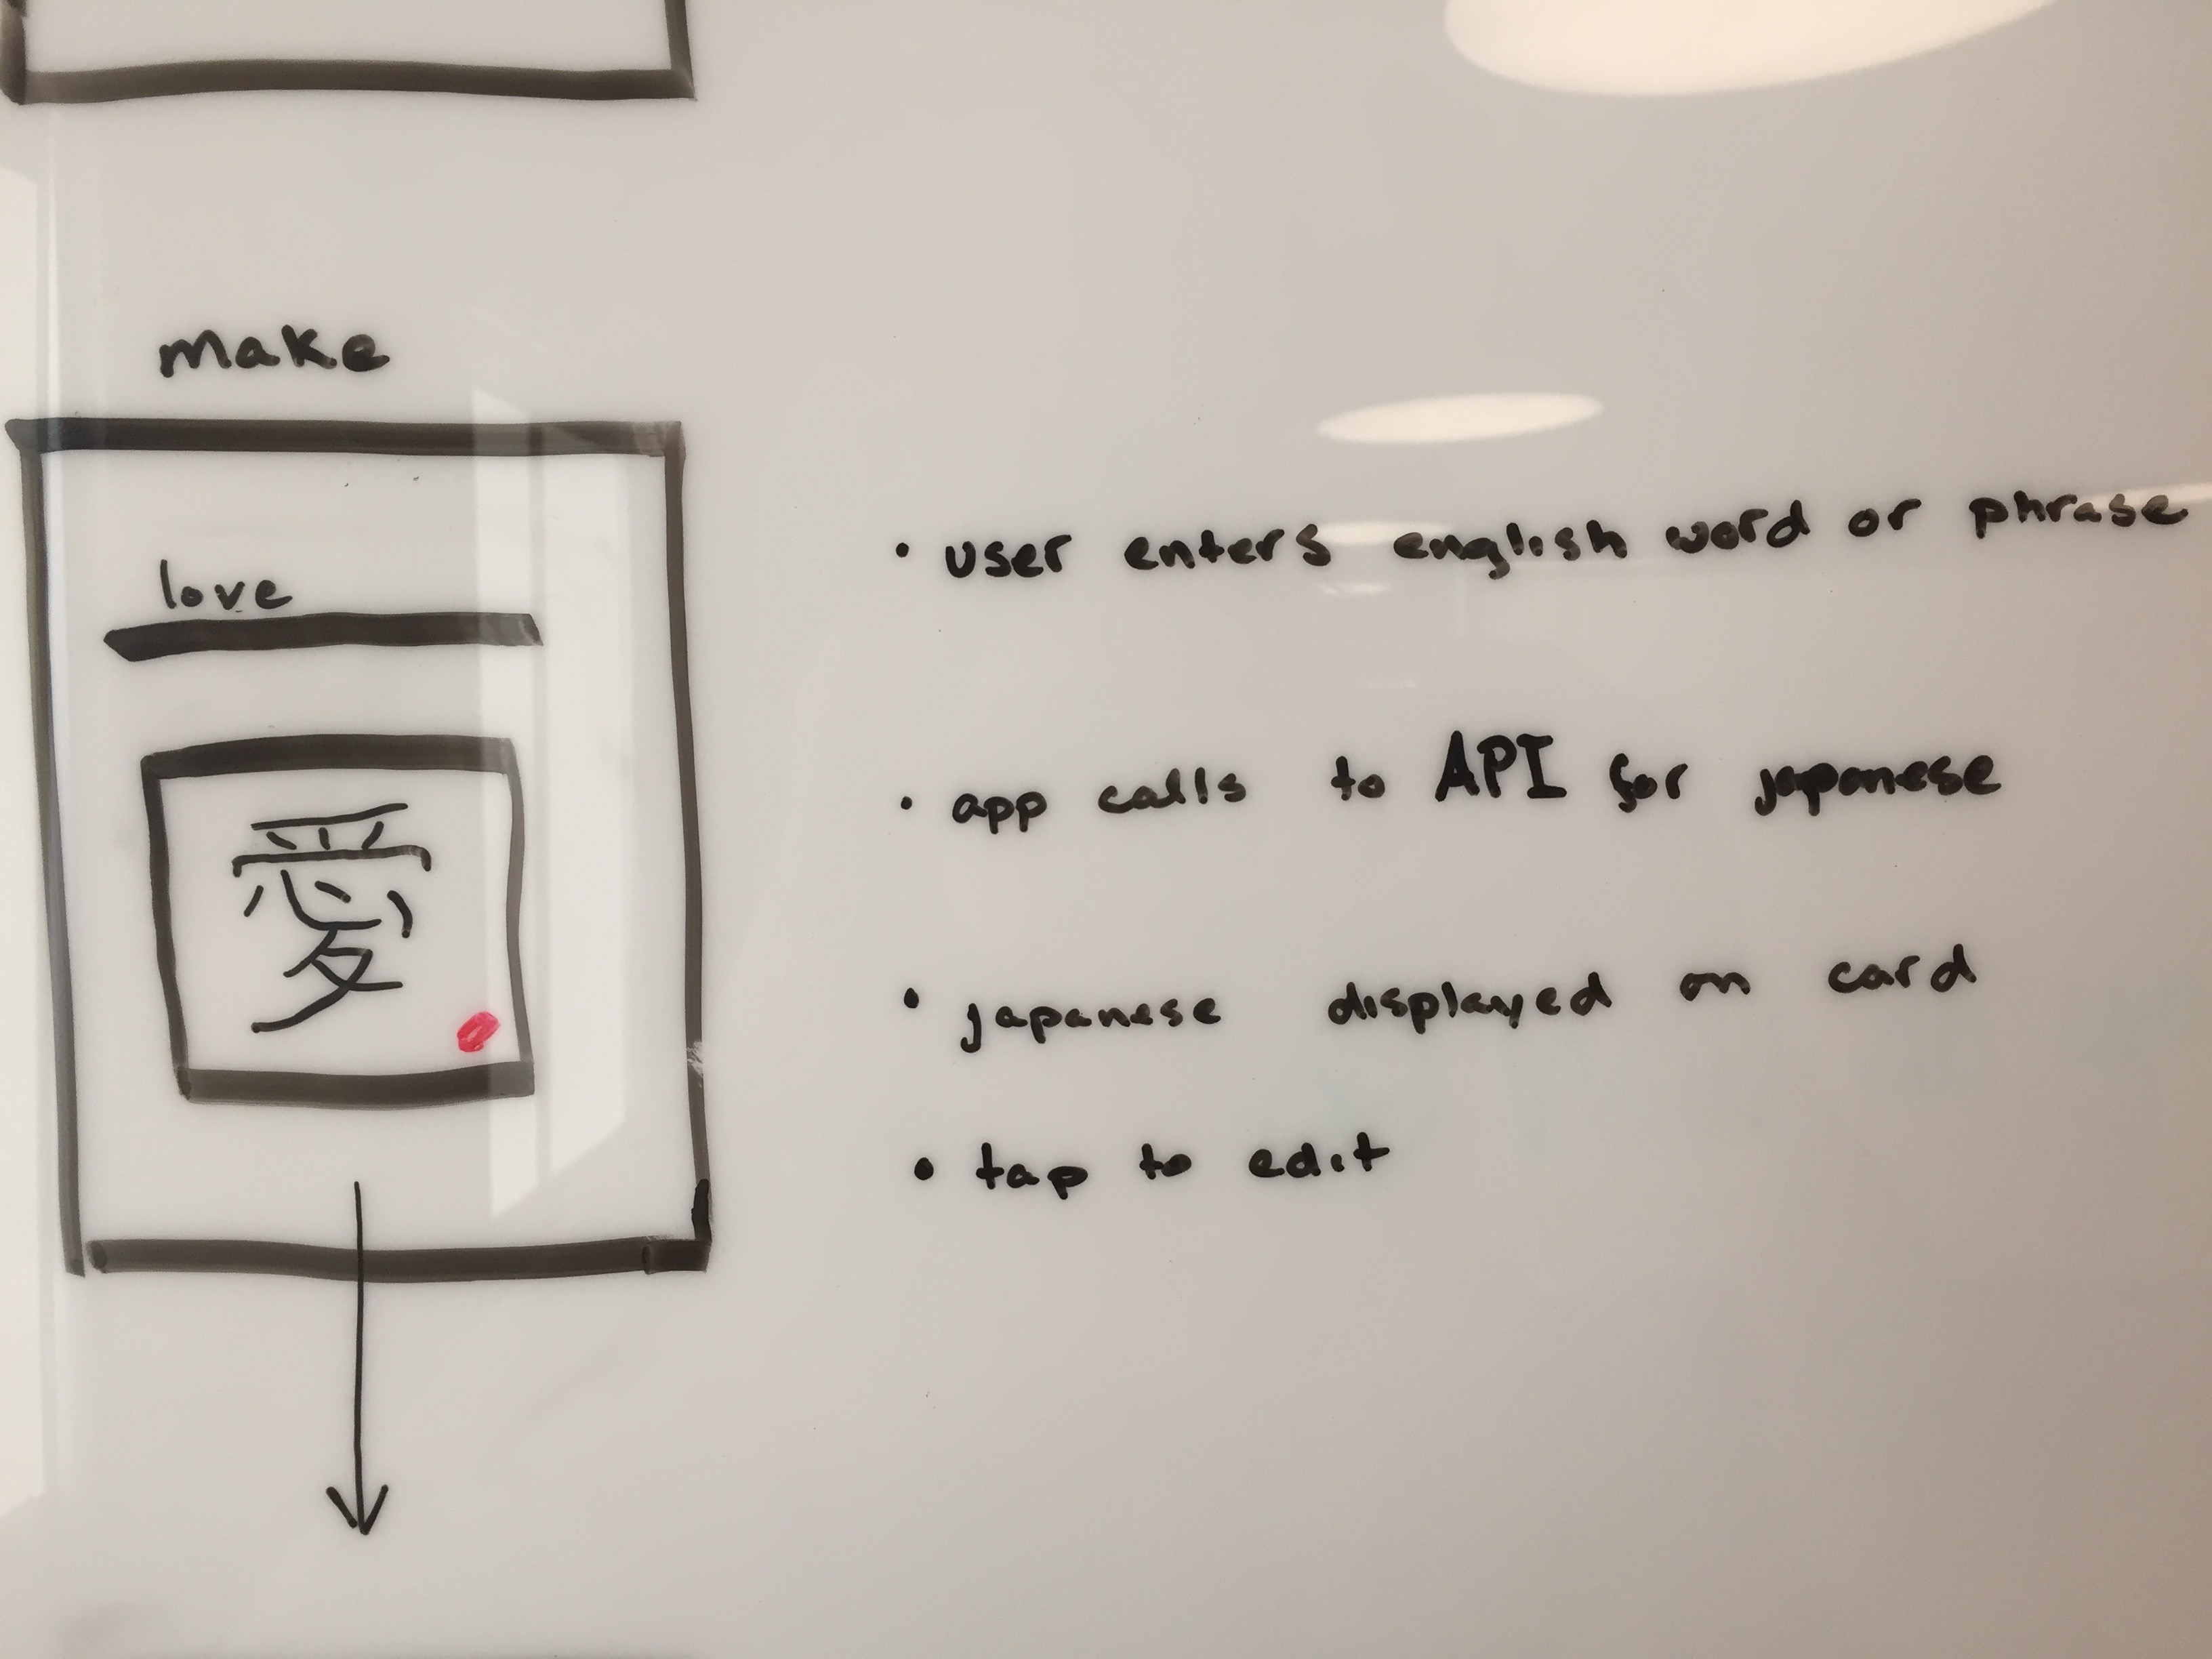 make
love
愛
• user enters english word or phrase
• app calls to API for japanese
• japanese displayed on card
• tap to edit